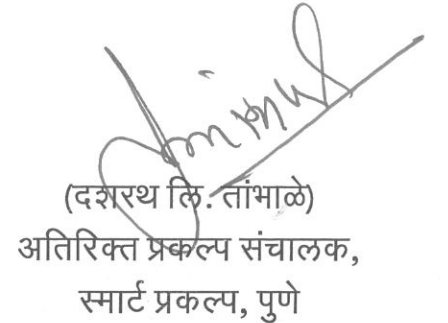 (दशरथ लि. तांभाळे)
अतिरिक्त प्रकल्प संचालक,
स्मार्ट प्रकल्प, पुणे